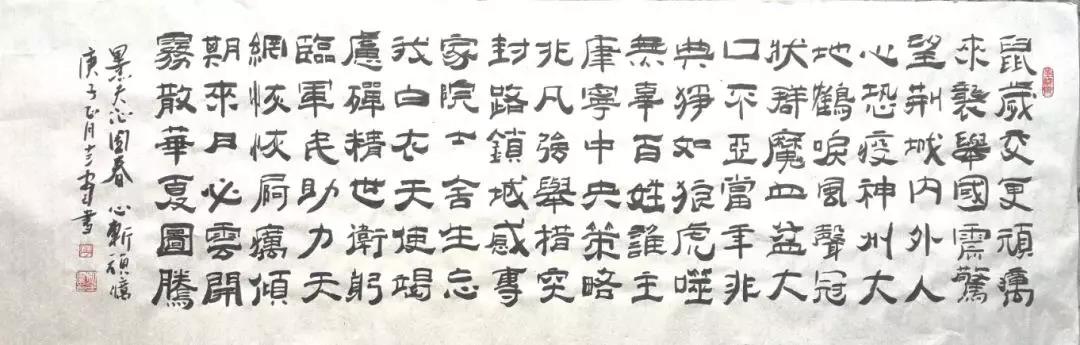 鼠歲交更頑癘
來襲舉國震驚
望荆城内外人
心恐疫神州大
地鶴唳風聲冠
狀群魔血盆大
口不亞當年非
典猙如狼虎噬
無辜百姓誰主
康寧中央策略
凡強舉措突
封路鎖城感專
家院士舍生忘
我白衣天使竭
慮殫精世衛躬
臨軍民助力天
網恢恢癘傾
期來月必雲開
霧散華夏圖騰
景天沁園春 心斬頑
庚子正月書